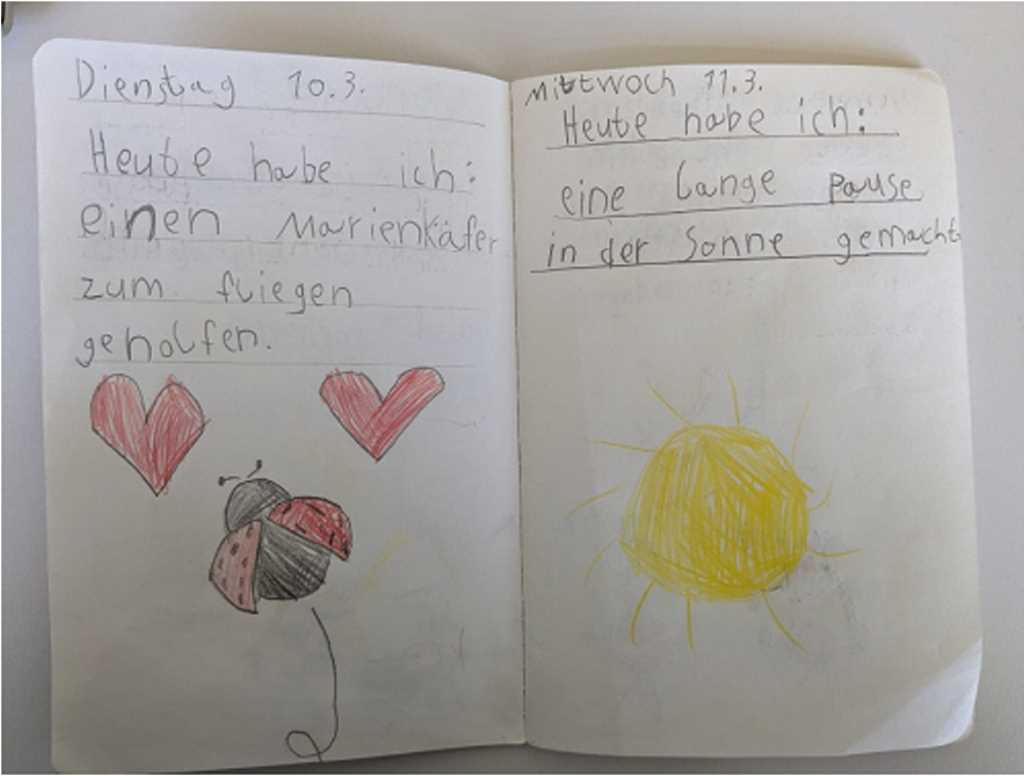 Dienstag 10.3.
Heute habe ich:
einen Marienkäfer
zum fliegen
geholfen.
Mittwoch 11.3.
Heute habe ich:
eine lange pause
in der Sonne gemacht.